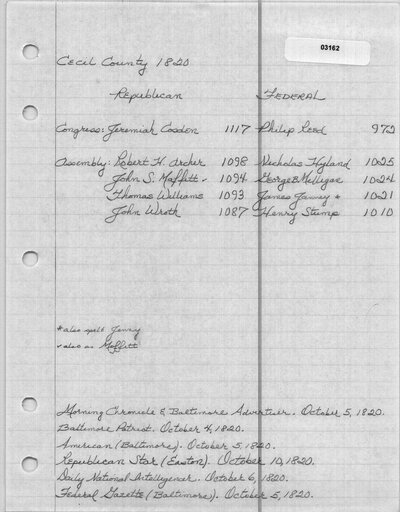 03162
Cecil County 1820
Republican Federal
Congress: Jeremiah Cosden 1117 Philip Reed 972
Assembly: Robert H. Archer 1098 Nicholas Hyland 1025
John S. Maffitt ✓ 1094 George B. Milligan 1024
Thomas Williams 1093 James Janney * 1021
John Wroth 1087 Henry Stump 1010
* also spelt Jenny
✓ also as Moffitt
Morning Chronicle & Baltimore Advertiser. October 5, 1820.
Baltimore Patriot. October 4, 1820.
American (Baltimore). October 5, 1820.
Republican Star (Easton). October 10, 1820.
Daily National Intelligencer. October 6, 1820.
Federal Gazette (Baltimore). October 5, 1820.